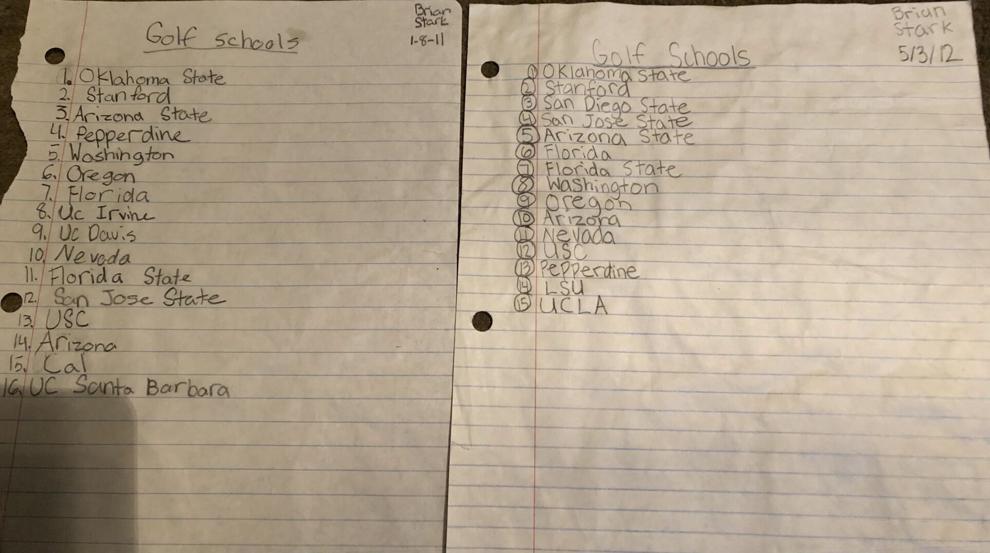 Brian
Stark
1-8-11
Golf schools
1. Oklahoma State
2. Stanford
3. Arizona State
4. Pepperdine
5. Washington
6. Oregon
7. Florida
8. Uc Irvine
9. Uc Davis
10. Nevada
11. Florida State
12. San Jose State
13. USC
14. Arizona
15. Cal
16. UC Santa Barbara
Brian
Stark
5/3/12
Golf Schools
1 Oklahoma State
2 Stanford
3 San Diego State
4 San Jose State
5 Arizona State
6 Florida
7 Florida State
8 Washington
9 Oregon
10 Arizona
11 Nevada
12 USC
13 Pepperdine
14 LSU
15 UCLA